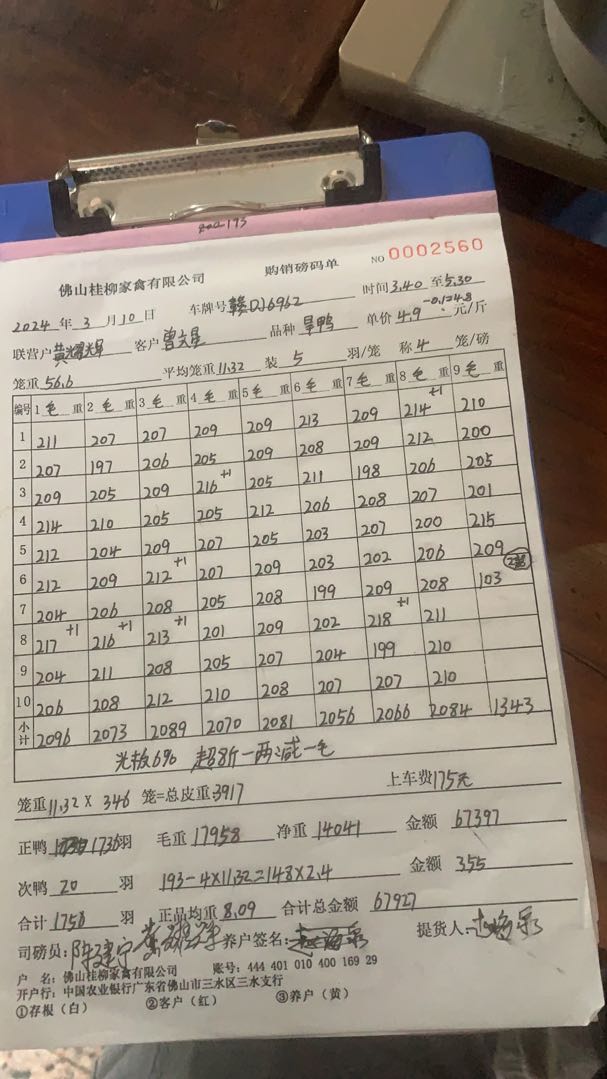 佛山桂柳家禽有限公司 购销磅码单 NO 0002560
2024年3月10日 车牌号赣DJ6962 时间3.40至5.30
联营户黄耀辉 客户 品种旱鸭 单价4.9-0.1=4.8元/斤
笼重56.6 平均笼重11.32 装5羽/笼 称4笼/磅
编号 1毛重 2毛重 3毛重 4毛重 5毛重 6毛重 7毛重 8毛重 9毛重
1 211 207 207 209 209 213 209 214+1 210
2 207 197 206 205 209 208 209 212 200
3 209 205 209 216+1 205 211 198 206 205
4 214 210 205 205 212 206 208 207 201
5 212 204 209 207 205 203 207 200 215
6 212 209 212+1 207 209 203 202 206 209
7 204 206 208 205 208 199 209 208 103
8 217+1 216+1 213+1 201 209 202 218+1 211
9 204 211 208 205 207 204 199 210
10 206 208 212 210 208 207 207 210
小计 2096 2073 2089 2070 2081 2056 2066 2084 1343
光板6% 超8斤一两减一毛
笼重11.32X 346 笼=总皮重3917 上车费175元
正鸭1736羽 毛重17958 净重14041 金额67397
次鸭20羽 193-4×11.32=148×2.4 金额355
合计1756羽 正品均重8.09 合计总金额67927
司磅员: 陈建宁 养户签名: 提货人:
户 名: 佛山桂柳家禽有限公司 账号: 444 401 010 400 169 29
开户行: 中国农业银行广东省佛山市三水区三水支行
①存根（白） ②客户（红） ③养户（黄）